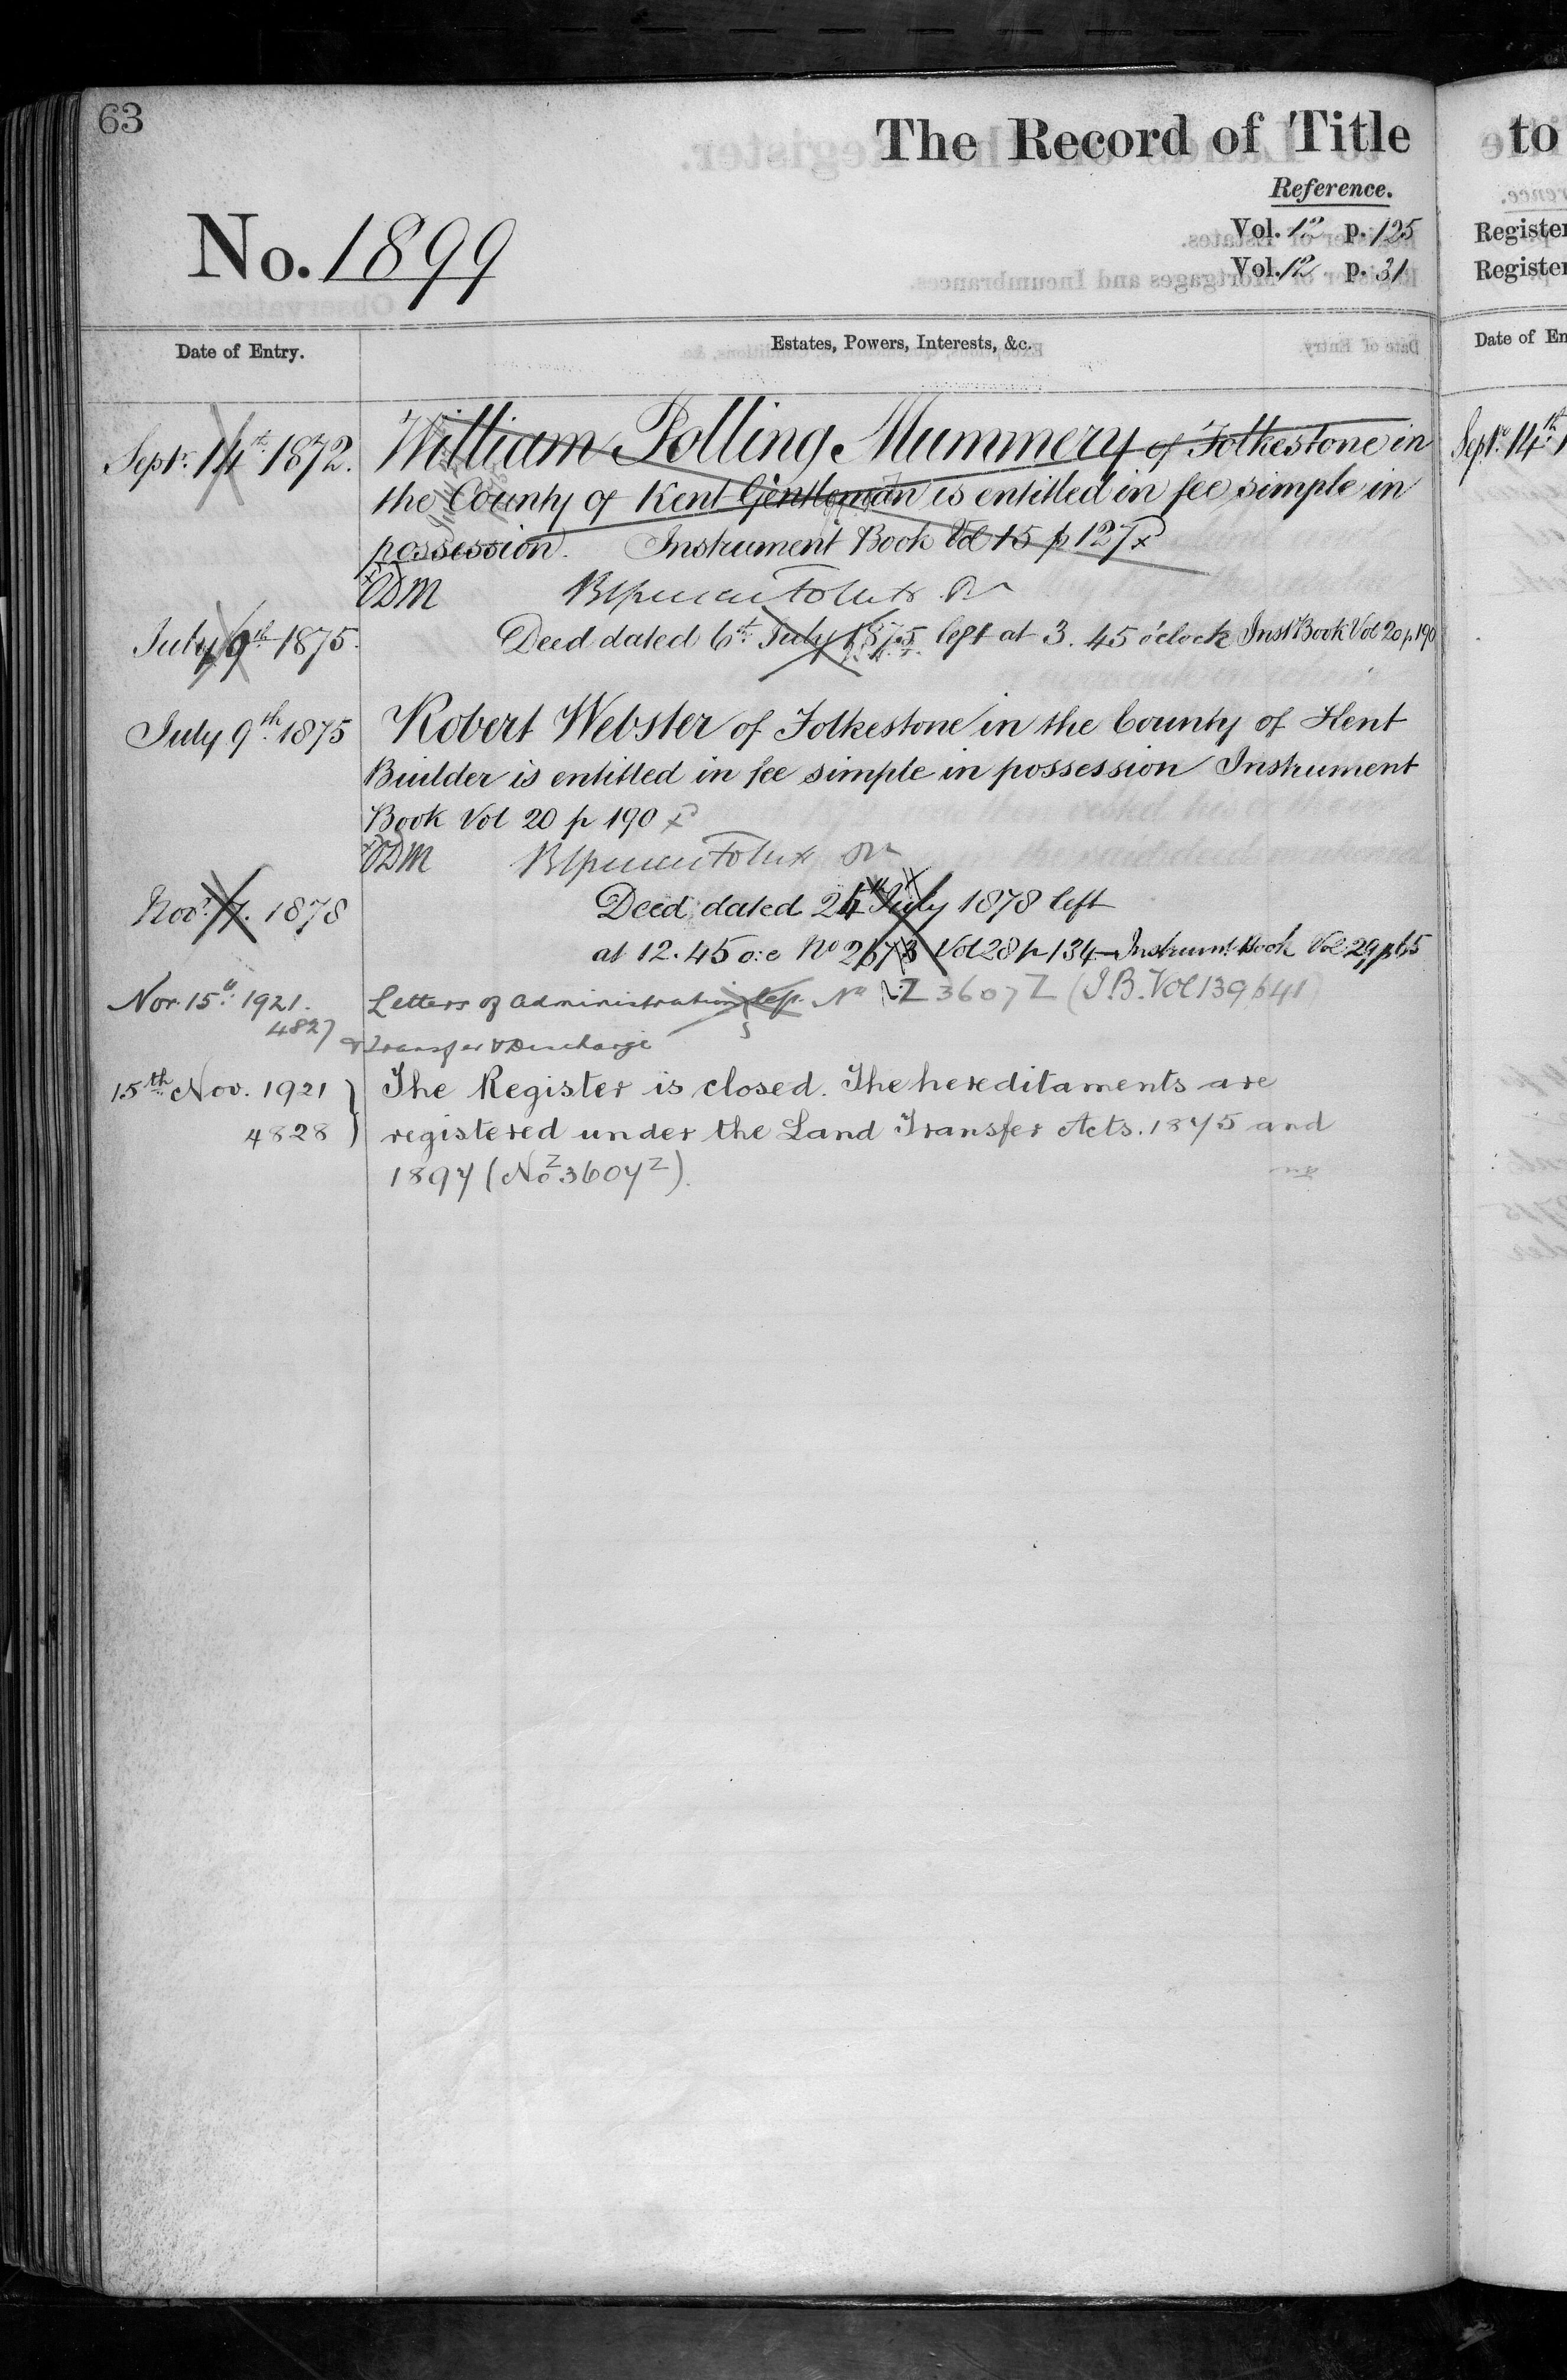 63
The Record of Title
to
Reference.
No. 1899
Vol. 12 p. 125
Vol. 12 p. 31
Register
Register
Date of Entry.
Estates, Powers, Interests, &c.
Date of En
Septr. 14th 1872.
William Polling Mummery of Folkestone in
Septr. 14th 1
the County of Kent Gentleman is entitled in fee simple in
possession. Instrument Book Vol 15 p 127 x
x ODM
July 9th 1875.
Deed dated 6th July 1875 left at 3.45 o'clock Inst Book Vol 20 p 190
July 9th 1875
Robert Webster of Folkestone in the County of Kent
Builder is entitled in fee simple in possession Instrument
Book Vol 20 p 190 x
x ODM
Novr. 7. 1878
Deed dated 24th July 1878 left
at 12.45 o:c No 2678 Vol 28 p 134 Instrumt Book Vol: 29 p 65
Nov. 15th 1921.
Letters of Administration left No Z 3607 Z (I.B. Vol 139 p 41)
4827
& Transfer & Discharge
15th Nov. 1921
The Register is closed. The hereditaments are
4828
registered under the Land Transfer Acts. 1875 and
1897 (No Z3607Z).